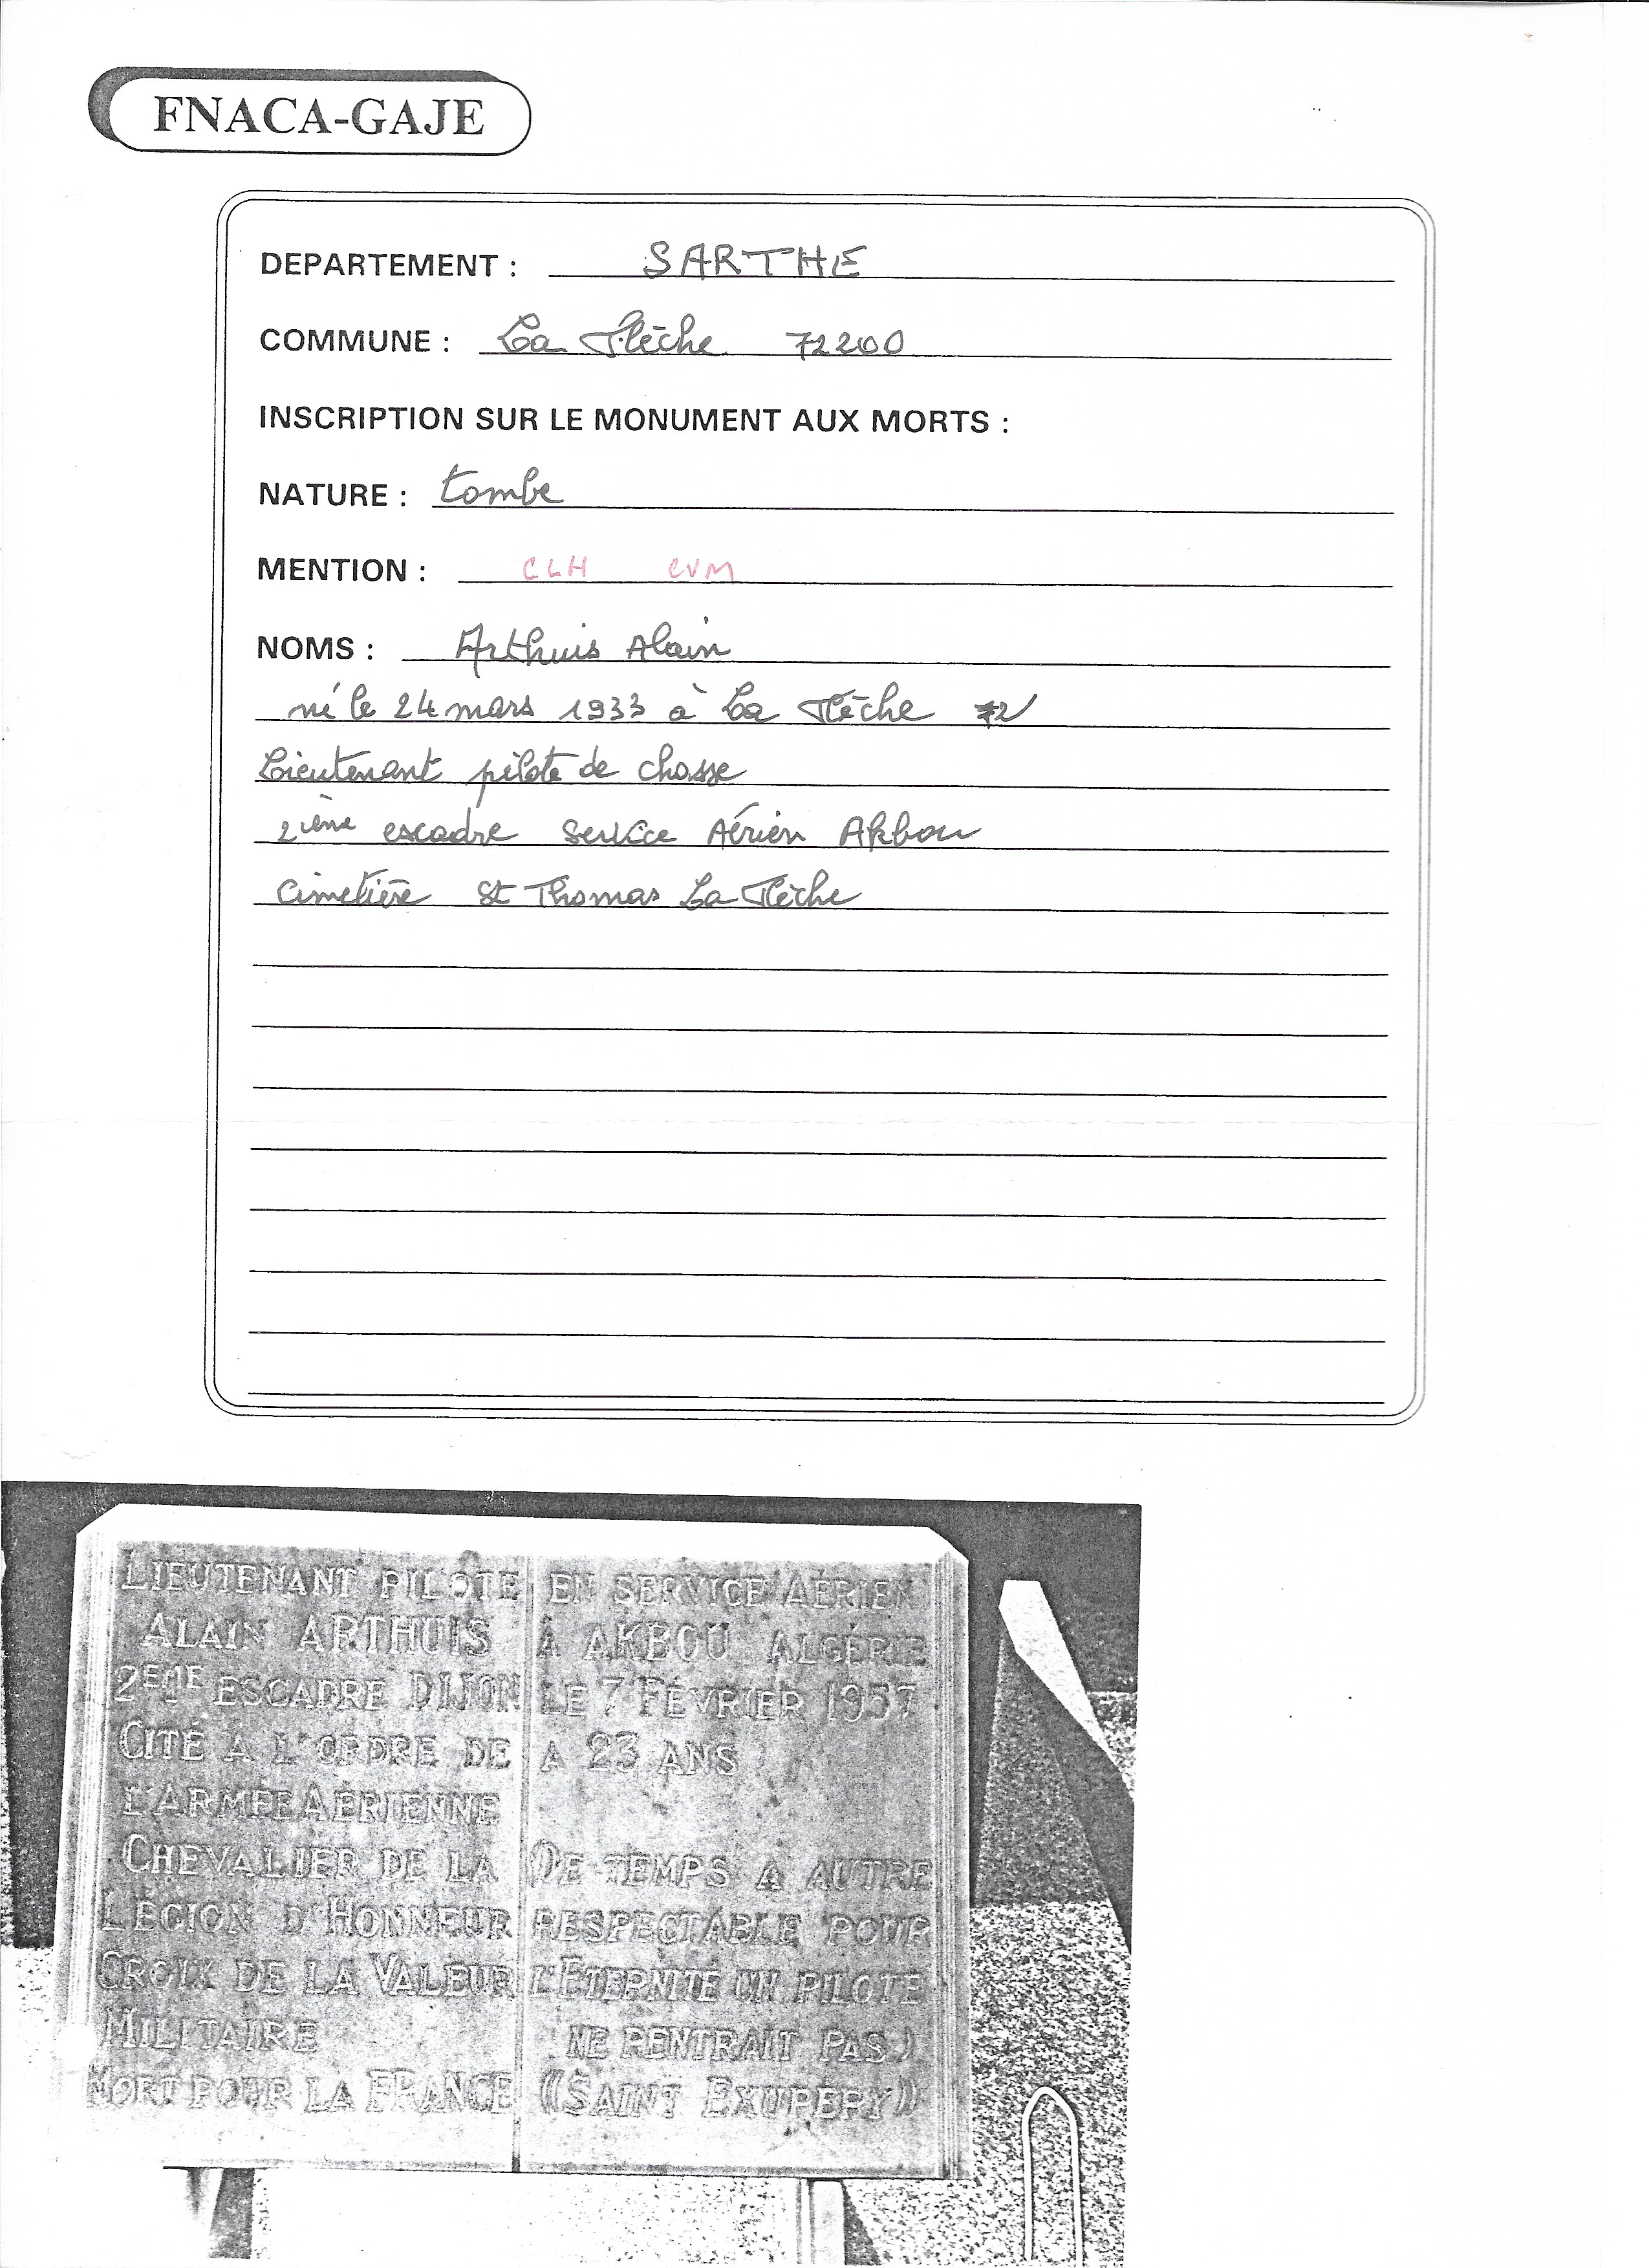 FNACA-GAJE
DEPARTEMENT : SARTHE
COMMUNE : La Flèche 72200
INSCRIPTION SUR LE MONUMENT AUX MORTS :
NATURE : tombe
MENTION : CLH CVM
NOMS : Arthuis Alain
né le 24 mars 1933 à La Flèche 72
Lieutenant pilote de chasse
2ième escadre Service Aérien Akbou
Cimetière St Thomas La Flèche
LIEUTENANT PILOTE
ALAIN ARTHUIS
2EME ESCADRE DIJON
CITÉ À L'ORDRE DE
L'ARMÉE AÉRIENNE
CHEVALIER DE LA
LÉGION D'HONNEUR
CROIX DE LA VALEUR
MILITAIRE
MORT POUR LA FRANCE
EN SERVICE AÉRIEN
À AKBOU ALGÉRIE
LE 7 FÉVRIER 1957
A 23 ANS
(DE TEMPS A AUTRE
RESPECTABLE POUR
L'ETERNITÉ UN PILOTE
NE RENTRAIT PAS)
((SAINT EXUPERY))